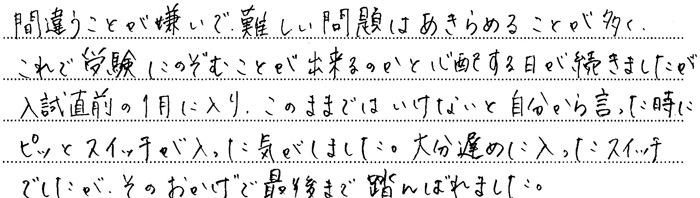 間違うことが嫌いで、難しい問題はあきらめることが多く、
これで受験にのぞむことが出来るのかと心配する日が続きましたが
入試直前の1月に入り、このままではいけないと自分から言った時に
ピッとスイッチが入った気がしました。大分遅めに入ったスイッチ
でしたが、そのおかげで最後まで踏んばれました。